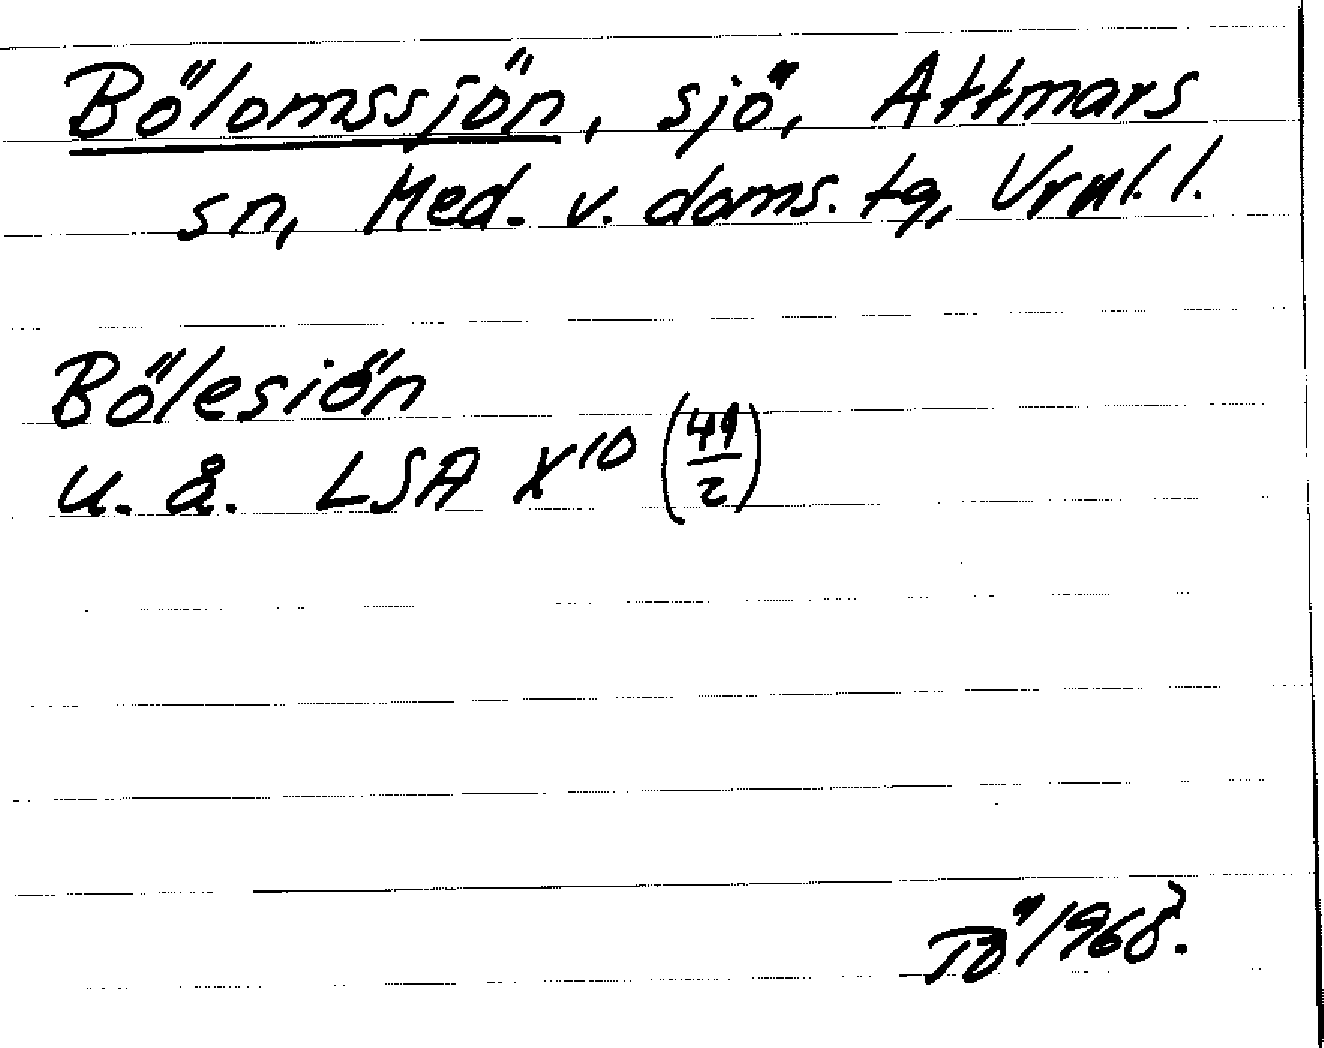 Bölomssjön, sjö, Attmars
sn, Med. v. doms. tg, Vrnl. l.
Bölesiön
u. å. LSA X¹⁰ (49/2)
Tö 1968.